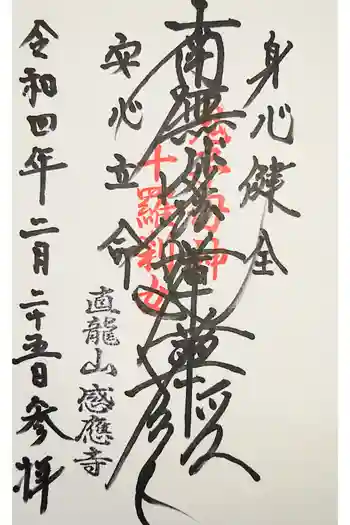 身心健全
南無妙法蓮華経
鬼子母神
十羅刹女
安心立命
直龍山感應寺
令和四年二月二十五日参拝